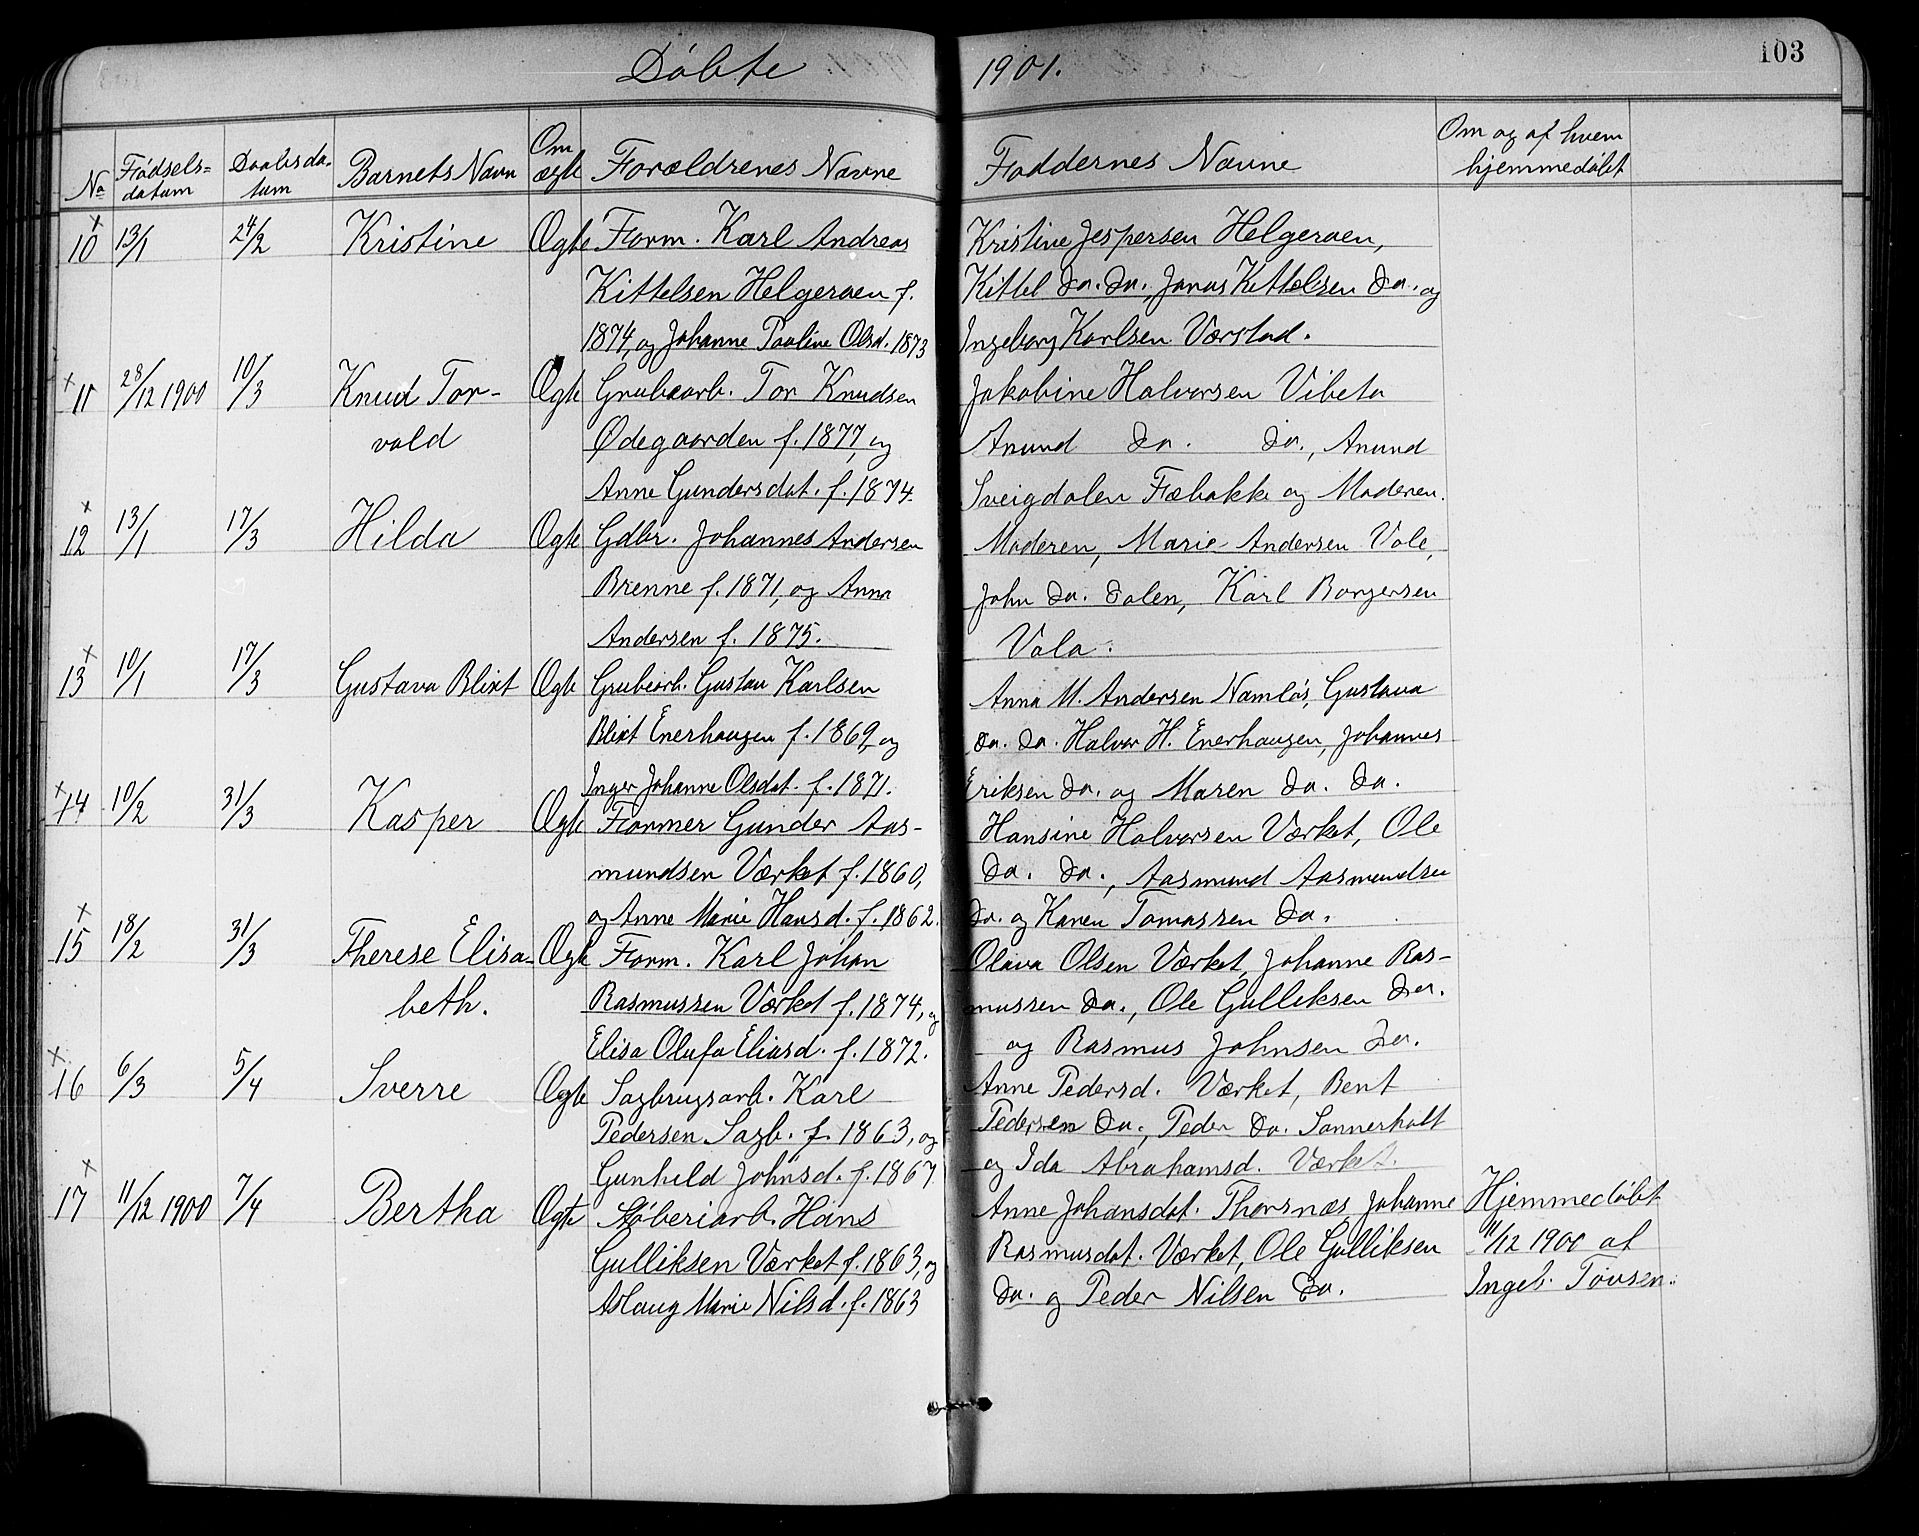 Døbte 1901. 103
No Fødsels=datum Daabsdatum Barnets Navn Om ægte Forældrenes Navne Faddernes Navne Om og af hvem hjemmedøbt
10 13/1 24/2 Kristine Ægte Form. Karl Andreas
Kittelsen Helgeraen f.
1874, og Johanne Pauline Olsd. 1873
Kristine Jespersen Helgeraen,
Kittel do. do., Jonas Kittelsen do. og
Ingeborg Karlsen Værstad.
11 28/12 1900 10/3 Knud Tor-
vald
Ægte Grubearb. Tor Knudsen
Ødegaarden f. 1877, og
Anne Gundersdat. f. 1874.
Jakobine Halvorsen Vibeto
Anund do. do., Anund
Sveigdalen Fæbakke og Moderen.
12 13/1 17/3 Hilda Ægte Gdbr. Johannes Andersen
Brenne f. 1871, og Anna
Andersen f. 1875.
Moderen, Marie Andersen Vole,
John do. Dalen, Karl Borgersen
Vola.
13 10/1 17/3 Gustava Blixt Ægte Grubearb. Gustav Karlsen
Blixt Enerhaugen f. 1869, og
Inger Johanne Olsdat. f. 1871.
Anna M. Andersen Namløs, Gustava
do. do. Halvor H. Enerhaugen, Johannes
Eriksen do. og Maren do. do.
14 10/2 31/3 Kasper Ægte Former Gunder Aas-
mundsen Værket f. 1860,
og Anne Marie Hansd. f. 1862.
Hansine Halvorsen Værket, Ole
do. do., Aasmund Aasmundsen
do. og Karen Tomassen do.
15 18/2 31/3 Therese Elisa-
beth.
Ægte Form. Karl Johan
Rasmussen Værket f. 1874, og
Elisa Olufa Eliasd. f. 1872.
Olava Olsen Værket, Johanne Ras-
mussen do., Ole Gulliksen do.
og Rasmus Johnsen do.
16 6/3 5/4 Sverre Ægte Sagbrugsarb. Karl
Pedersen Sagb. f. 1863, og
Gunhild Johnsd. f. 1867
Anne Pedersd. Værket, Bent
Pedersen do., Peder do. Sannerholt
og Ida Abrahamsd. Værket.
17 11/12 1900 7/4 Bertha Ægte Støberiarb. Hans
Gulliksen Værket f. 1863, og
Aslaug Marie Nilsd. f. 1863
Anne Johansdat. Thorsnæs, Johanne
Rasmusdat. Værket, Ole Gulliksen
do. og Peder Nilsen do.
Hjemmedøbt
11/12 1900 af
Ingeb. Tovsen.